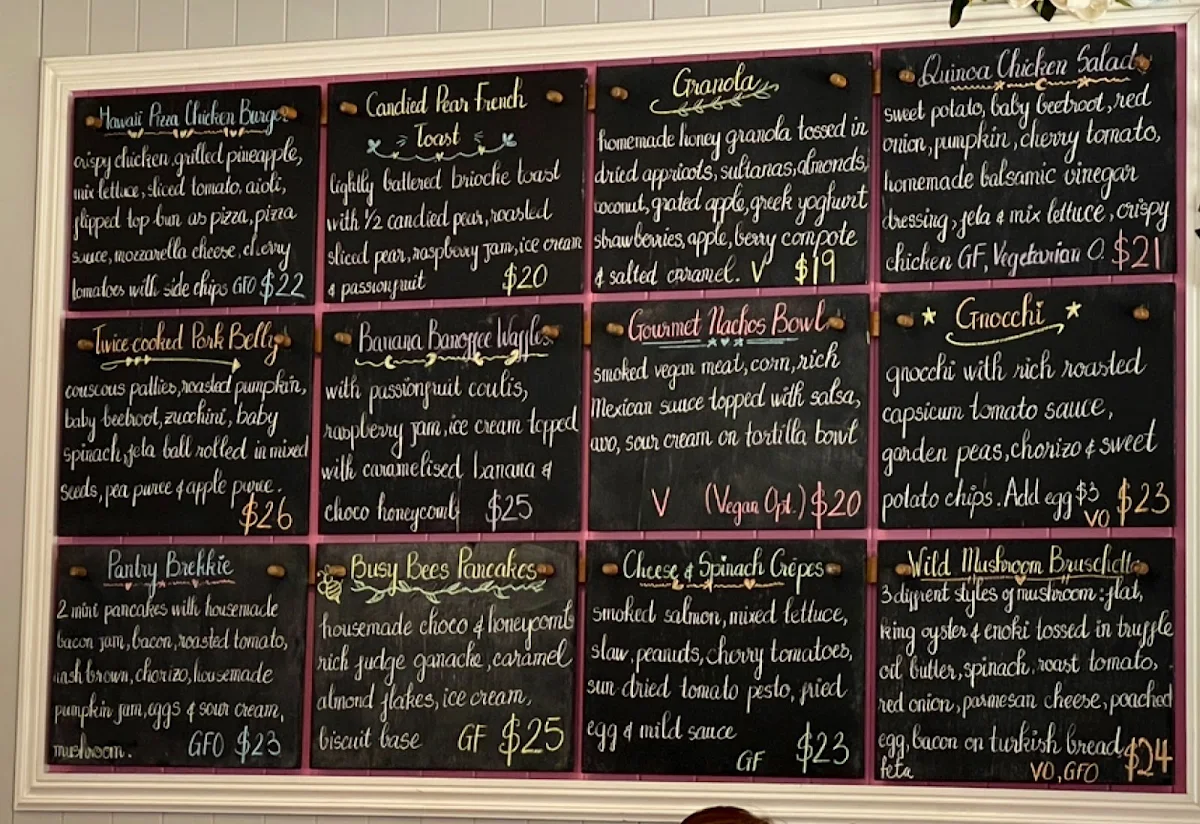 Hawaii Pizza Chicken Burger
crispy chicken, grilled pineapple,
mix lettuce, sliced tomato, aioli,
flipped top bun as pizza, pizza
sauce, mozzarella cheese, cherry
tomatoes with side chips GFO $22
Candied Pear French
Toast
lightly battered brioche toast
with 1/2 candied pear, roasted
sliced pear, raspberry jam, ice cream
& passionfruit $20
Granola
homemade honey granola tossed in
dried appricots, sultanas, almonds,
coconut, grated apple, greek yoghurt
strawberries, apple, berry compote
& salted caramel. V $19
Quinoa Chicken Salad
sweet potato, baby beetroot, red
onion, pumpkin, cherry tomato,
homemade balsamic vinegar
dressing, feta & mix lettuce, crispy
chicken GF, Vegetarian O. $21
Twice cooked Pork Belly
couscous patties, roasted pumpkin,
baby beetroot, zucchini, baby
spinach, feta ball rolled in mixed
seeds, pea puree & apple puree.
$26
Banana Banoffee Waffles
with passionfruit coulis,
raspberry jam, ice cream topped
with caramelised banana &
choco honeycomb $25
Gourmet Nachos Bowl
smoked vegan meat, corn, rich
Mexican sauce topped with salsa,
avo, sour cream on tortilla bowl
V (Vegan Opt.) $20
Gnocchi
gnocchi with rich roasted
capsicum tomato sauce,
garden peas, chorizo & sweet
potato chips. Add egg $3 $23
VO
Pantry Brekkie
2 mini pancakes with housemade
bacon jam, bacon, roasted tomato,
hash brown, chorizo, housemade
pumpkin jam, eggs & sour cream,
mushroom. GFO $23
Busy Bees Pancakes
housemade choco & honeycomb
rich fudge ganache, caramel
almond flakes, ice cream,
biscuit base GF $25
Cheese & Spinach Crêpes
smoked salmon, mixed lettuce,
slaw, peanuts, cherry tomatoes,
sun dried tomato pesto, fried
egg & mild sauce
GF $23
Wild Mushroom Bruschetta
3 different styles of mushroom: flat,
king oyster & enoki tossed in truffle
oil butter, spinach, roast tomato,
red onion, parmesan cheese, poached
egg, bacon on turkish bread, $24
feta VO, GFO